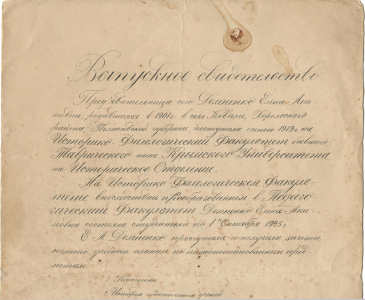 Выпускное свидетельство.
Предъявительница сего Демненко Елена Аки-
мовна родившаяся в 1901 г. в селе Ковали, Хорольского
района, Полтавской губернии, поступила осенью 1919 г. на
Историко-Филологический Факультет бывшего
Таврического ныне Крымского Университета
на Историческое Отделение.
На Историко-Филологическом Факуль-
тете впоследствии преобразованном в Педаго-
гический Факультет Демненко Елена Аки-
мовна состояла студенткой по 1е Октября 1925 г.
Е. А. Демненко прослушала и получила зачеты
согласно учебного плана по нижепоименованным пред-
метам:
История